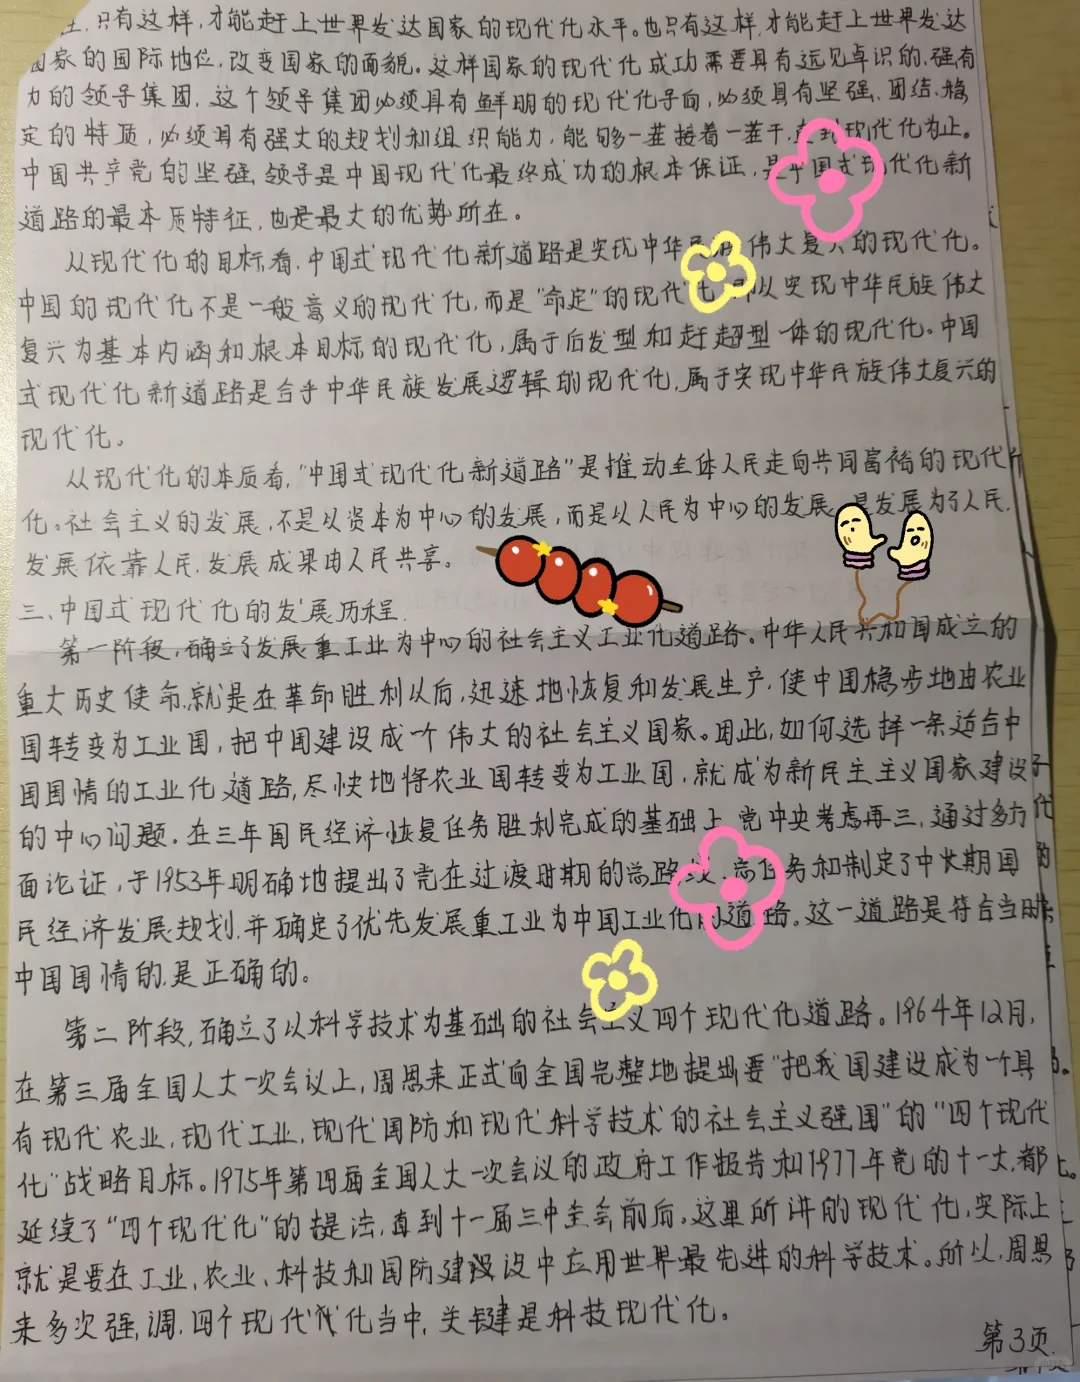 性,只有这样,才能赶上世界发达国家的现代化水平。也只有这样,才能赶上世界发达
国家的国际地位,改变国家的面貌。这样国家的现代化成功需要具有远见卓识的、强有
力的领导集团,这个领导集团必须具有鲜明的现代化导向,必须具有坚强、团结、稳
定的特质,必须具有强大的规划和组织能力,能够一茬接着一茬干,直到现代化为止。
中国共产党的坚强领导是中国现代化最终成功的根本保证,是中国式现代化新
道路的最本质特征,也是最大的优势所在。
从现代化的目标看,中国式现代化新道路是实现中华民族伟大复兴的现代化。
中国的现代化不是一般意义的现代化,而是“命定”的现代化,即以实现中华民族伟大
复兴为基本内涵和根本目标的现代化,属于后发型和赶超型一体的现代化。中国
式现代化新道路是合乎中华民族发展逻辑的现代化,属于实现中华民族伟大复兴的
现代化。
从现代化的本质看,“中国式现代化新道路”是推动全体人民走向共同富裕的现代
化。社会主义的发展,不是以资本为中心的发展,而是以人民为中心的发展,是发展为了人民,
发展依靠人民,发展成果由人民共享。
三、中国式现代化的发展历程.
第一阶段,确立了发展重工业为中心的社会主义工业化道路。中华人民共和国成立的
重大历史使命,就是在革命胜利以后,迅速地恢复和发展生产,使中国稳步地由农业
国转变为工业国,把中国建设成一个伟大的社会主义国家。因此,如何选择一条适合中
国国情的工业化道路,尽快地将农业国转变为工业国,就成为新民主主义国家建设
的中心问题。在三年国民经济恢复任务胜利完成的基础上,党中央考虑再三,通过多方
面论证,于1953年明确地提出了党在过渡时期的总路线、总任务和制定了中长期国
民经济发展规划,并确定了优先发展重工业为中国工业化的道路。这一道路是符合当时
中国国情的,是正确的。
第二阶段,确立了以科学技术为基础的社会主义四个现代化道路。1964年12月,
在第三届全国人大一次会议上,周恩来正式向全国完整地提出要“把我国建设成为一个具
有现代农业,现代工业,现代国防和现代科学技术的社会主义强国”的“四个现代
化”战略目标。1975年第四届全国人大一次会议的政府工作报告和1977年党的十一大,都
延续了“四个现代化”的提法,直到十一届三中全会前后。这里所讲的现代化,实际上
就是要在工业、农业、科技和国防建设中应用世界最先进的科学技术。所以,周恩
来多次强,调,四个现代化当中,关键是科技现代化。
第3页.